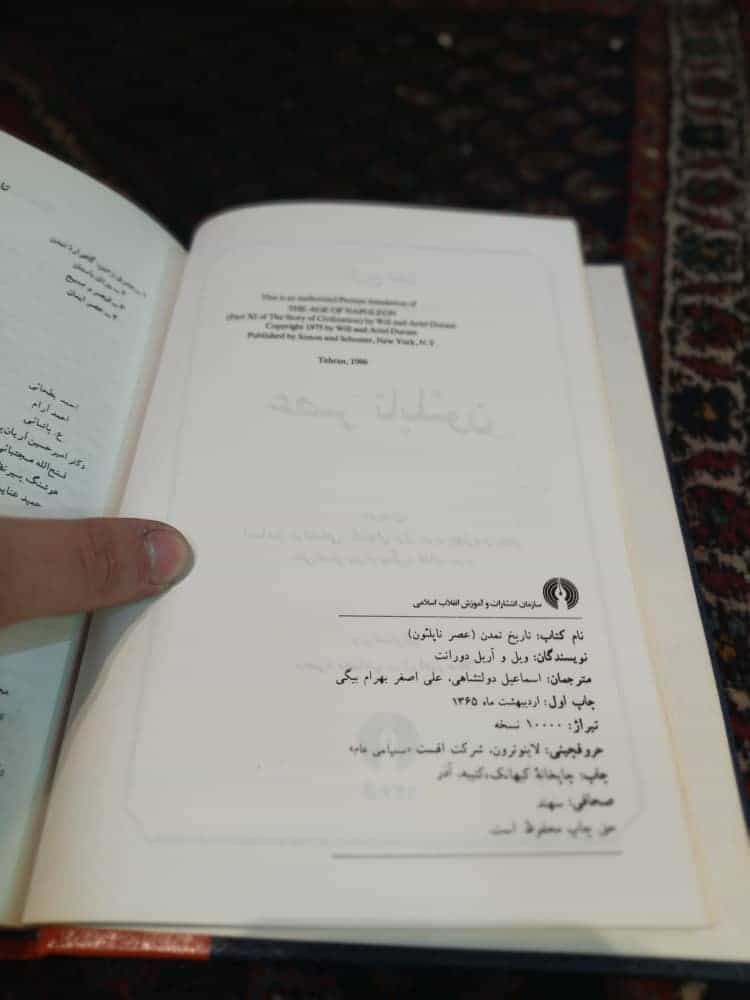 This is an authorized Persian translation of
THE AGE OF NAPOLEON
(Part XI of The Story of Civilization) by Will and Ariel Durant
Copyright 1975 by Will and Ariel Durant
Published by Simon and Schuster, New York, N. Y
Tehran, 1986
عصر ناپلئون
سازمان انتشارات و آموزش انقلاب اسلامی
نام کتاب: تاریخ تمدن (عصر ناپلئون)
نویسندگان: ویل و آریل دورانت
مترجمان: اسماعیل دولتشاهی، علی اصغر بهرام بیگی
چاپ اول: اردیبهشت ماه ۱۳۶۵
تیراژ: ۱۰۰۰۰ نسخه
حروفچینی: لاینوترون، شرکت افست «سهامی عام»
چاپ: چاپخانهٔ کیهانک، گنبد، آذر
صحافی: سهند
حق چاپ محفوظ است
۴ـ عصر ایمان
احمد بطحائی
احمد آرام
ع. پاشائی
دکتر امیرحسین آریان‌پ
فتح‌الله مجتبائی
هوشنگ پیرنظ
حمید عنای